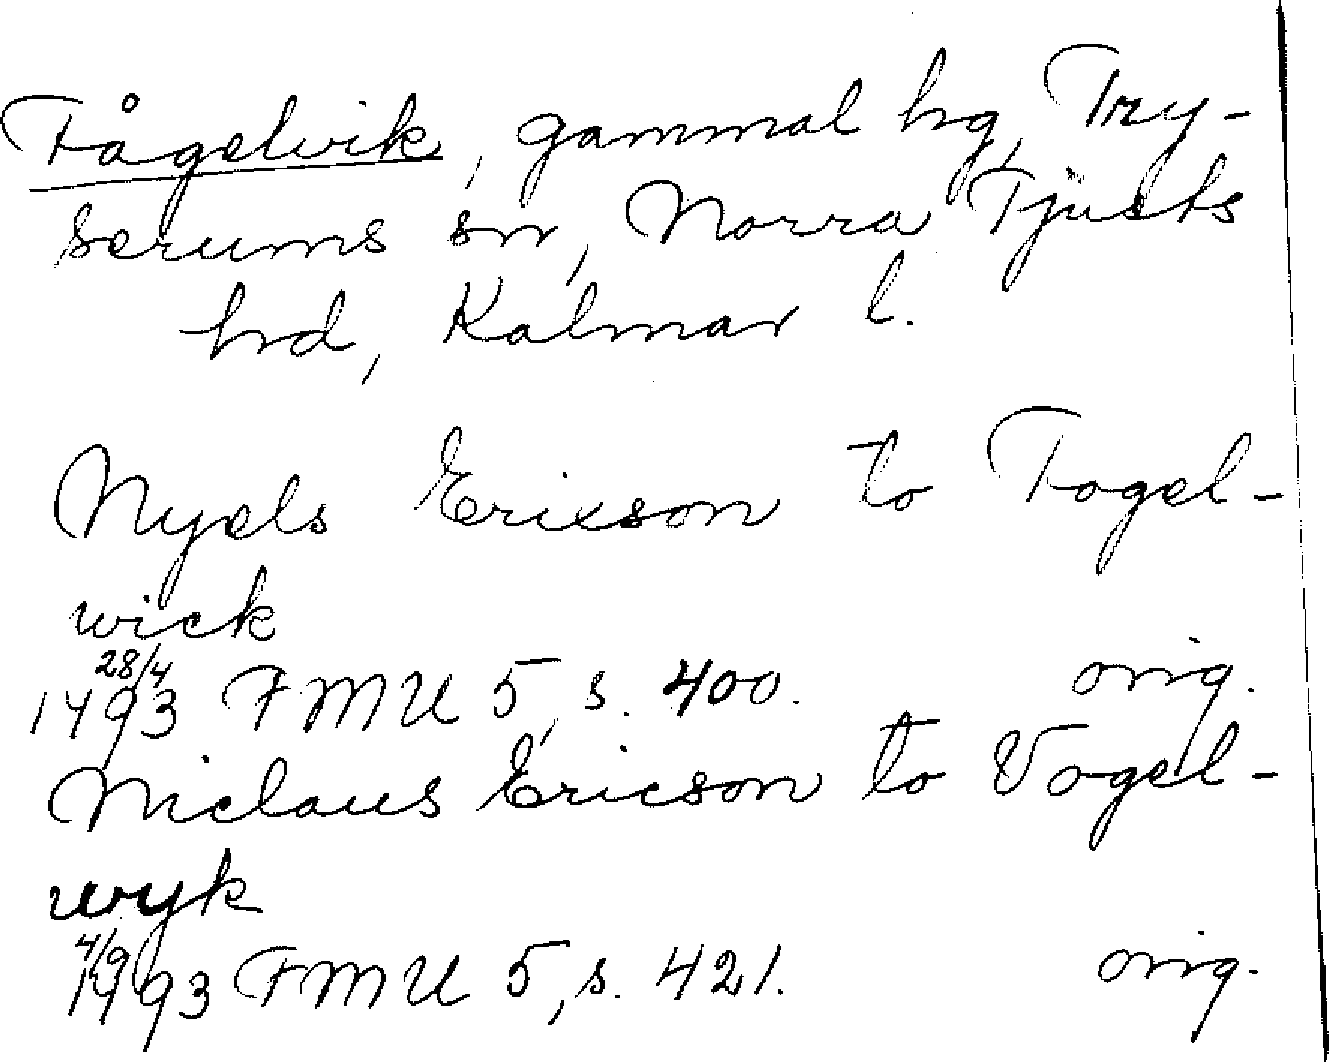 Fågelvik, gammal hg, Try-
serums sn, Norra Tjusts
hrd, Kalmar l.
Nyels Erixson to Fogel-
wick
28/4
1493 FMU 5, s. 400. orig.
Niclaus Ericson to Vogel-
wyk
4/9
1493 FMU 5, s. 421. orig.